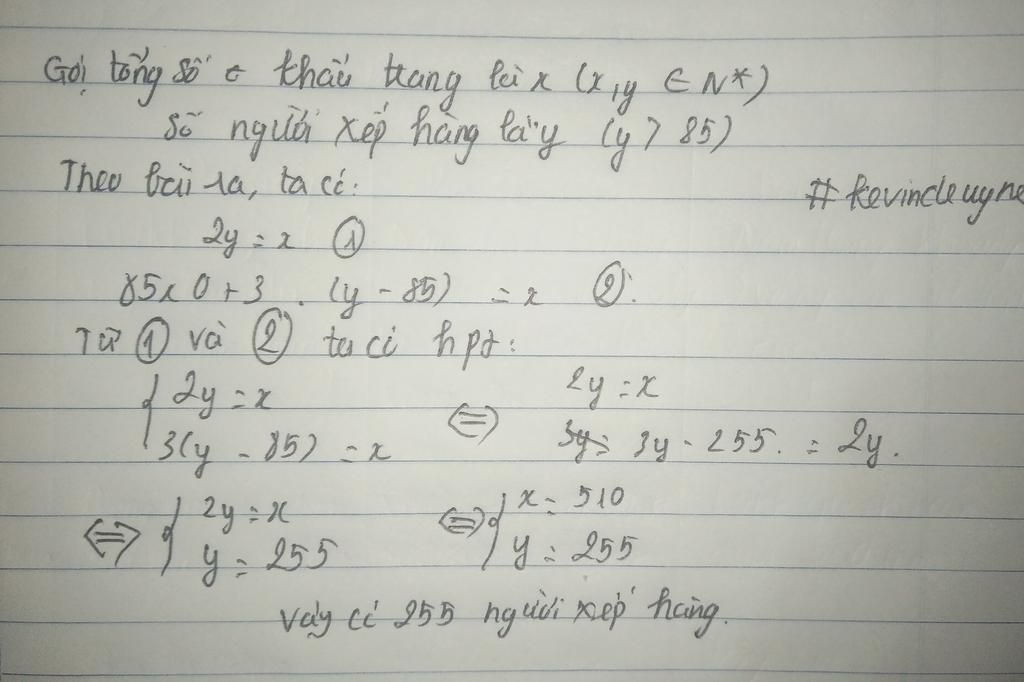 Gọi tổng số c khẩu trang là x (x,y ∈ N*)
Số người xếp hàng là y (y > 85)
Theo bài ra, ta có:
#kevincleuyne
2y = x ①
85x0 + 3 . (y - 85) = x ②.
Từ ① và ② ta có hpt:
{ 2y = x ⇔ 2y = x
3(y - 85) = x 3y = 3y - 255. = 2y.
⇔ { 2y = x ⇔ { x = 510
y = 255 y = 255
Vậy có 255 người xếp hàng.